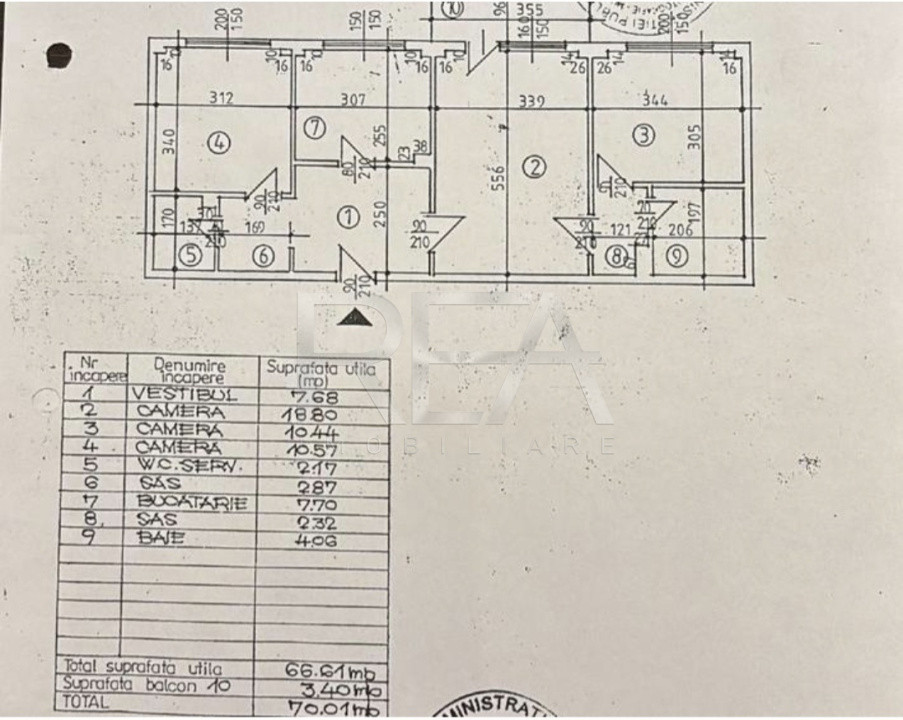 10
96
355
200
150
150
150
160
150
200
150
16
10
16
10
16
16
10
14
26
26
14
16
312
307
339
344
340
4
7
255
23
38
80
210
556
2
3
305
90
210
1
250
90
210
170
169
5
6
90
210
121
8
70
210
197
206
9
REA
IMOBILIARE
Nr incapere Denumire incapere Suprafata utila (mp)
1 VESTIBUL 7.68
2 CAMERA 18.80
3 CAMERA 10.44
4 CAMERA 10.57
5 W.C. SERV. 2.17
6 SAS 2.87
7 BUCATARIE 7.70
8 SAS 2.32
9 BAIE 4.06
Total suprafata utila 66.61mp
Suprafata balcon 10 3.40mp
TOTAL 70.01mp
MINISTRAT